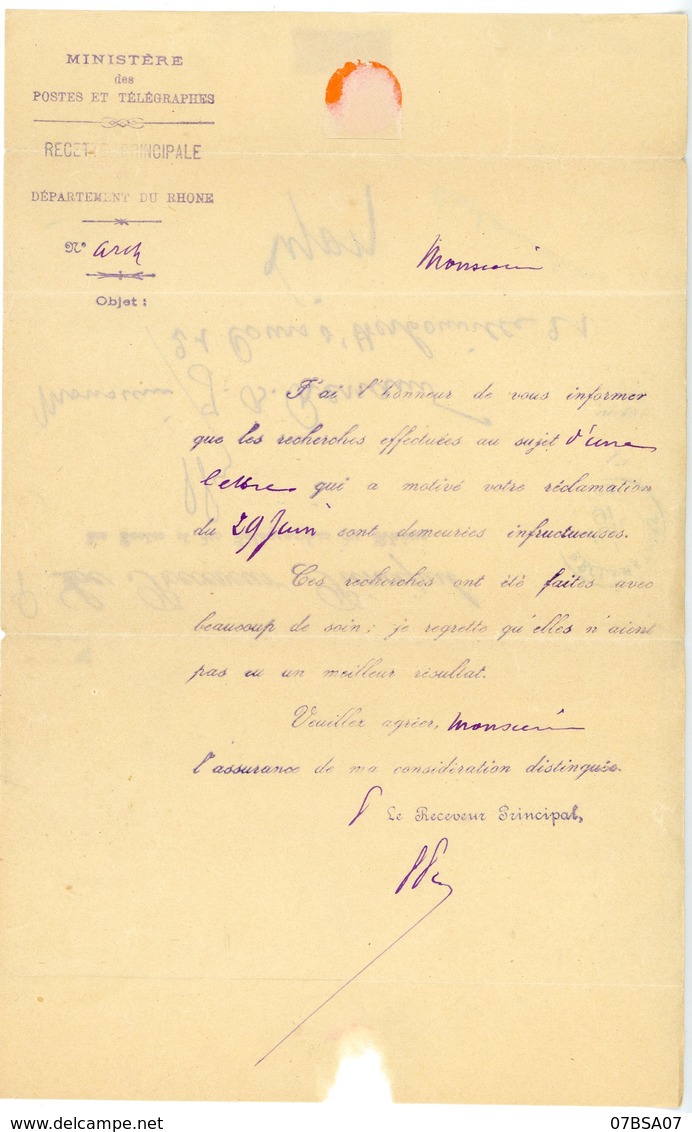 MINISTÈRE
des
POSTES ET TÉLÉGRAPHES
RECETTE PRINCIPALE
DÉPARTEMENT DU RHONE
N°
Objet :
Monsieur
J'ai l'honneur de vous informer
que les recherches effectuées au sujet d'une
lettre qui a motivé votre réclamation
du 29 Juin sont demeurées infructueuses.
Ces recherches ont été faites avec
beaucoup de soin ; je regrette qu'elles n'aient
pas eu un meilleur résultat.
Veuillez agréer, Monsieur
l'assurance de ma considération distinguée.
Le Receveur Principal,
delcampe.net
07BSA07